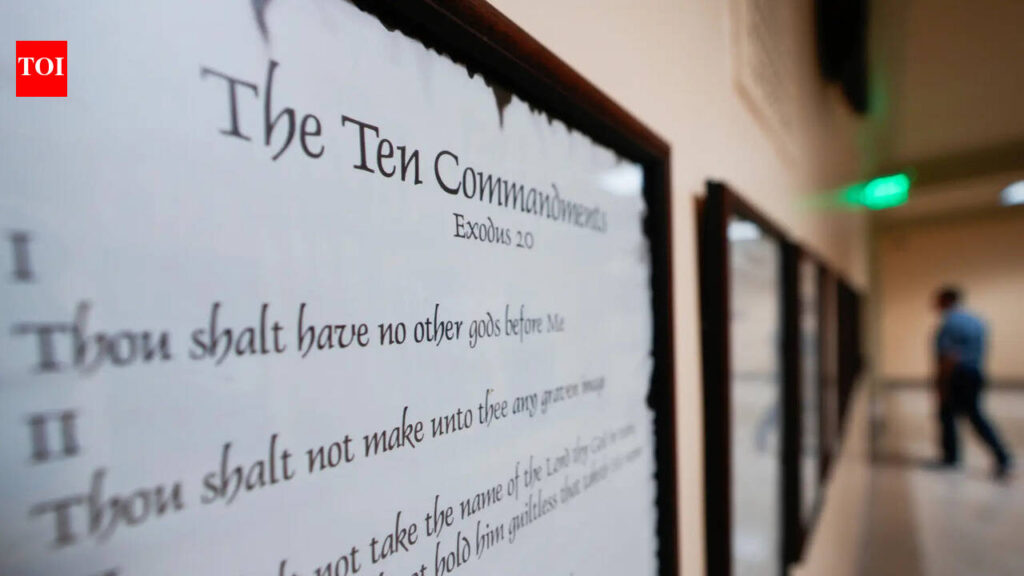 TOI
The Ten Commandments
Exodus 20
I
Thou shalt have no other gods before Me
II
Thou shalt not make unto thee any graven image
not take the name of the Lord thy God in
hold him guiltless that